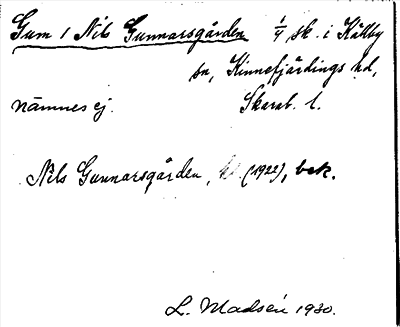 Gum 1 Nils Gunnarsgården 1/4 sk. i Källby
sn, Kinnefjärdings hd,
nämnes ej. Skarab. l.
Nils Gunnarsgården, (1922), bek.
L. Madsén 1930.